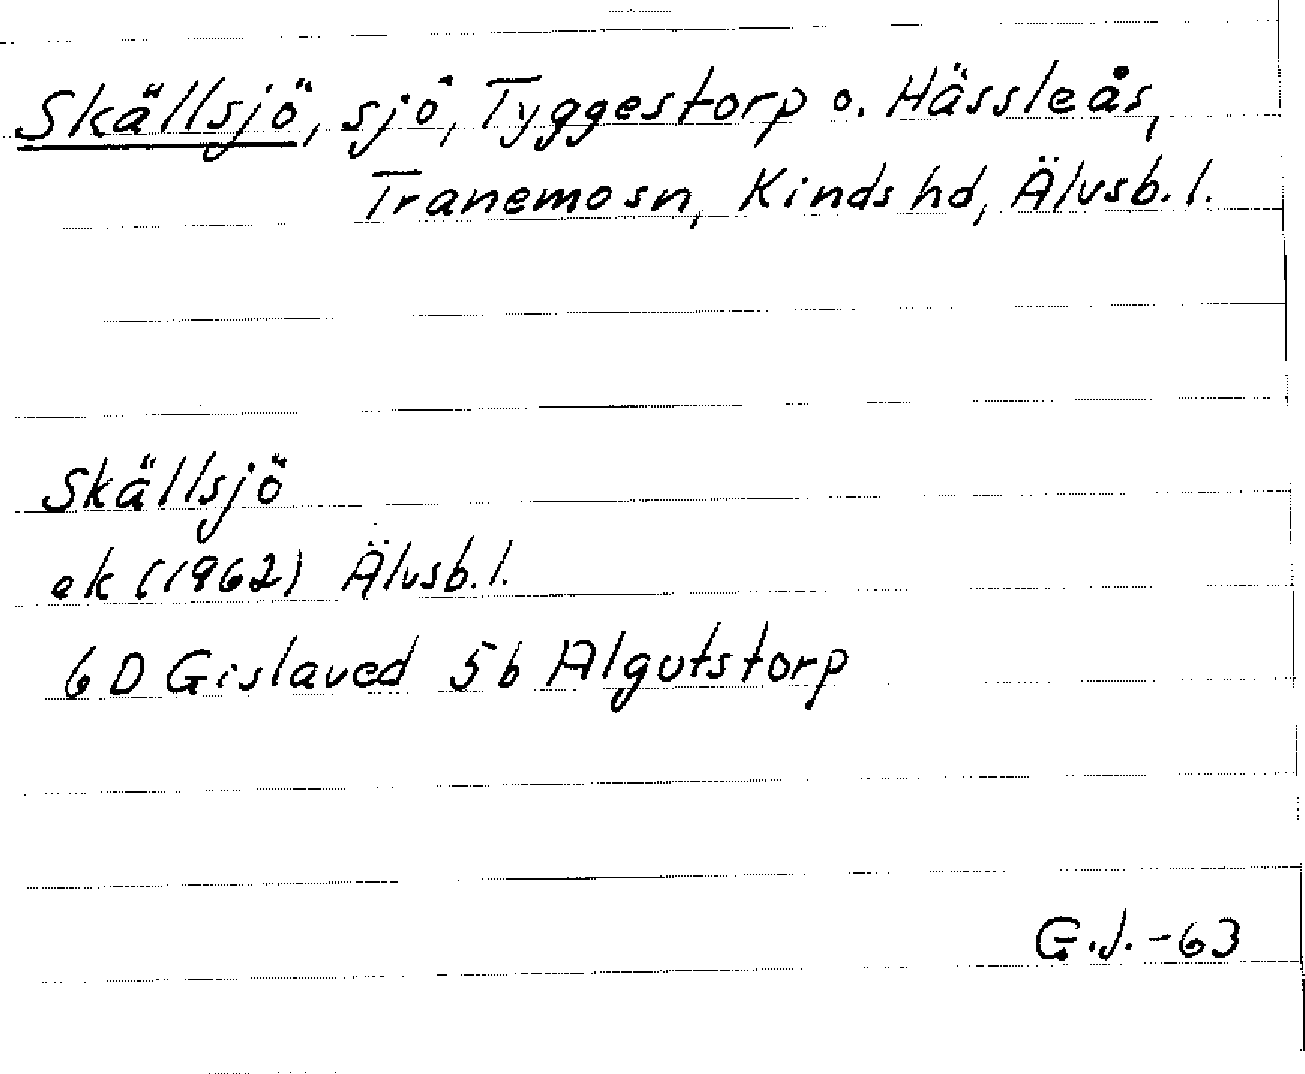 Skällsjö, sjö, Tyggestorp o. Hässleås,
Tranemo sn, Kinds hd, Älvsb. l.
Skällsjö
ek (1962) Älvsb. l.
6 D Gislaved 5b Algutstorp
G.J. -63